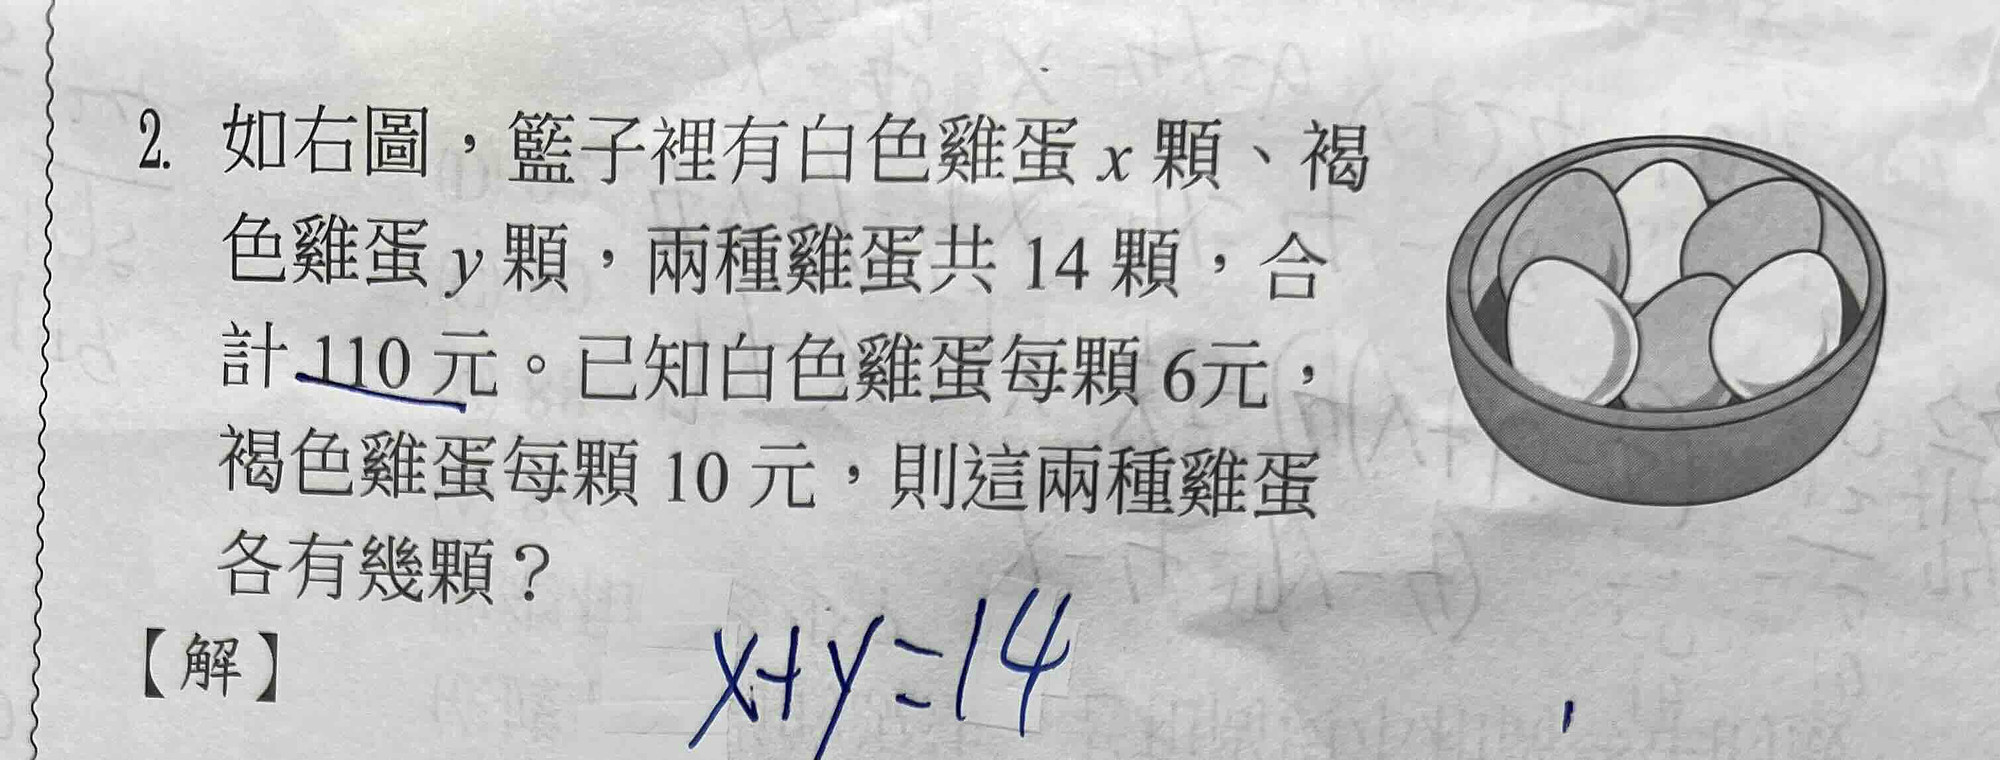 2. 如右圖，籃子裡有白色雞蛋 x 顆、褐
色雞蛋 y 顆，兩種雞蛋共 14 顆，合
計 110 元。已知白色雞蛋每顆 6元，
褐色雞蛋每顆 10 元，則這兩種雞蛋
各有幾顆？
【解】
x+y=14